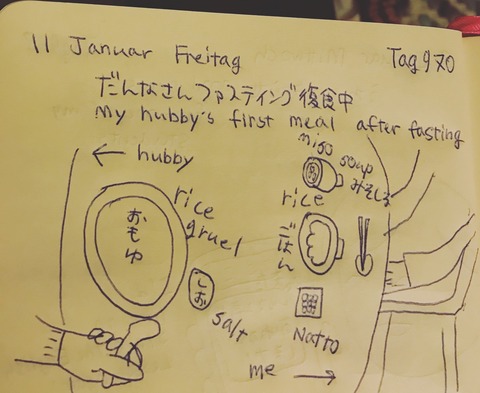 11 Januar Freitag
Tag 970
だんなさんファスティング復食中
My hubby's first meal after fasting
← hubby
rice
gruel
おもゆ
しお
salt
miso
soup
みそしる
rice
ごはん
Natto
me →